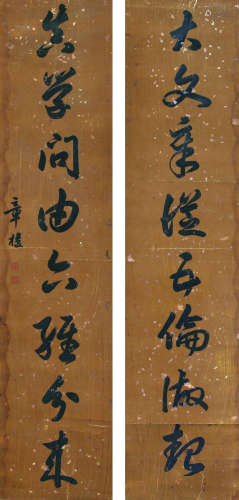 大文章從五倫做起
真学問由六經分来
章梫